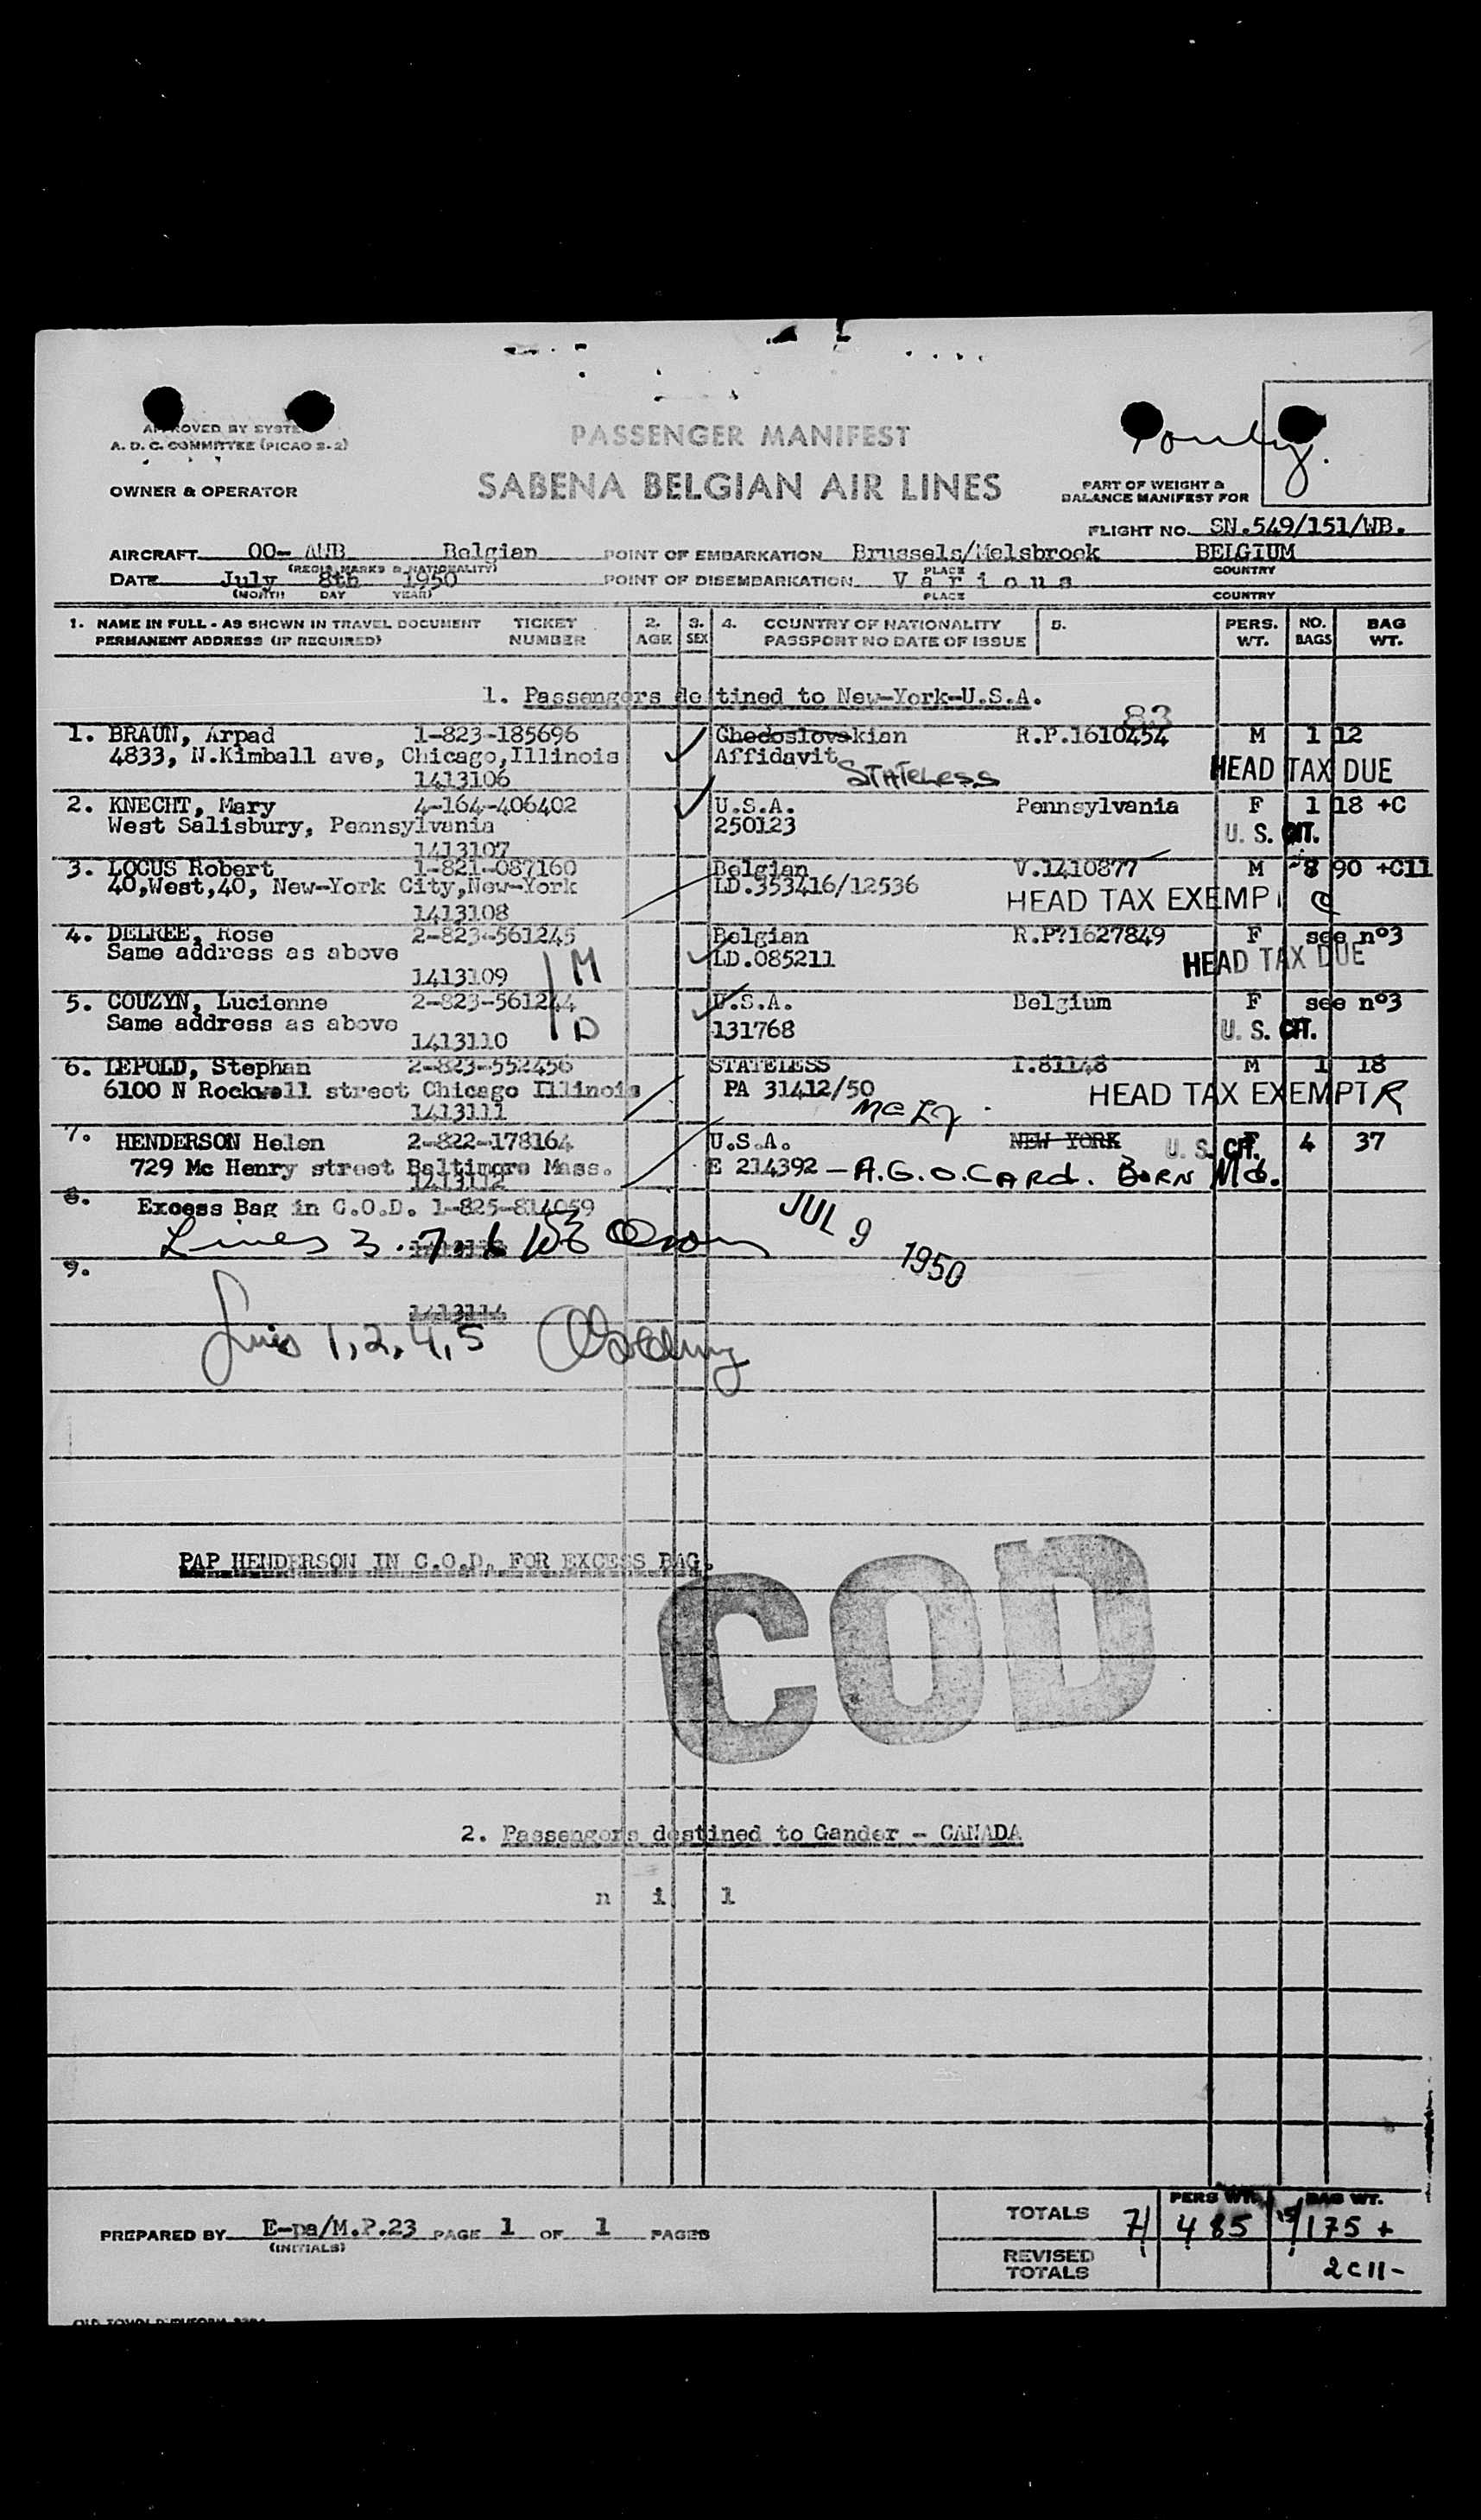 APPROVED BY SYSTEM
A. D. C. COMMITTEE (PICAO S-2)
PASSENGER MANIFEST
OWNER & OPERATOR
SABENA BELGIAN AIR LINES
PART OF WEIGHT &
BALANCE MANIFEST FOR
FLIGHT NO. SN.549/151/WB.
AIRCRAFT OO- AWB Belgian POINT OF EMBARKATION Brussels/Melsbroek BELGIUM
(REGIS. MARKS & NATIONALITY) PLACE COUNTRY
DATE July 8th 1950 POINT OF DISEMBARKATION V a r i o u s
(MONTH DAY YEAR) PLACE COUNTRY
1. NAME IN FULL - AS SHOWN IN TRAVEL DOCUMENT TICKET 2. 3. 4. COUNTRY OF NATIONALITY 5. PERS. NO. BAG
PERMANENT ADDRESS (IF REQUIRED) NUMBER AGE SEX PASSPORT NO DATE OF ISSUE WT. BAGS WT.
1. Passengers destined to New-York-U.S.A.
83
1. BRAUN, Arpad 1-823-185696 Chedoslovakian R.P.1610454 M 1 12
4833, N.Kimball ave, Chicago,Illinois Affidavit STATELESS HEAD TAX DUE
1413106
2. KNECHT, Mary 4-164-406402 U.S.A. Pennsylvania F 1 18 +C
West Salisbury, Pennsylvania 250123 U. S. CIT.
1413107
3. LOCUS Robert 1-821-087160 Belgian V.1410877 M 8 90 +C11
40,West,40, New-York City,New-York LD.353416/12536 HEAD TAX EXEMPT
1413108
4. DELREE, Rose 2-823-561245 Belgian R.P?1627849 F see n°3
Same address as above LD.085211 HEAD TAX DUE
1413109 M
5. COUZYN, Lucienne 2-823-561244 U.S.A. Belgium F see n°3
Same address as above D 131768 U. S. CIT.
1413110
6. LEPOLD, Stephan 2-823-552456 STATELESS I.81148 M 1 18
6100 N Rockwell street Chicago Illinois PA 31412/50 HEAD TAX EXEMPT R
1413111
7. HENDERSON Helen 2-822-178164 U.S.A. NEW YORK U. S. CIT. F 4 37
729 Mc Henry street Baltimore Mass. E 214392 - A.G.O. CARd. BORN Md.
1413112
8. Excess Bag in C.O.D. 1-825-814059 JUL 9 1950
Lines 3.7.6
9.
1413114
Lines 1,2,4,5
PAP HENDERSON IN C.O.D. FOR EXCESS BAG.
COD
2. Passengers destined to Gander - CANADA
n i l
PERS WT. BAG WT.
TOTALS 7 485 15/175 +
PREPARED BY E-pa/M.P.23 PAGE 1 OF 1 PAGES
(INITIALS)
REVISED
TOTALS 2c11-